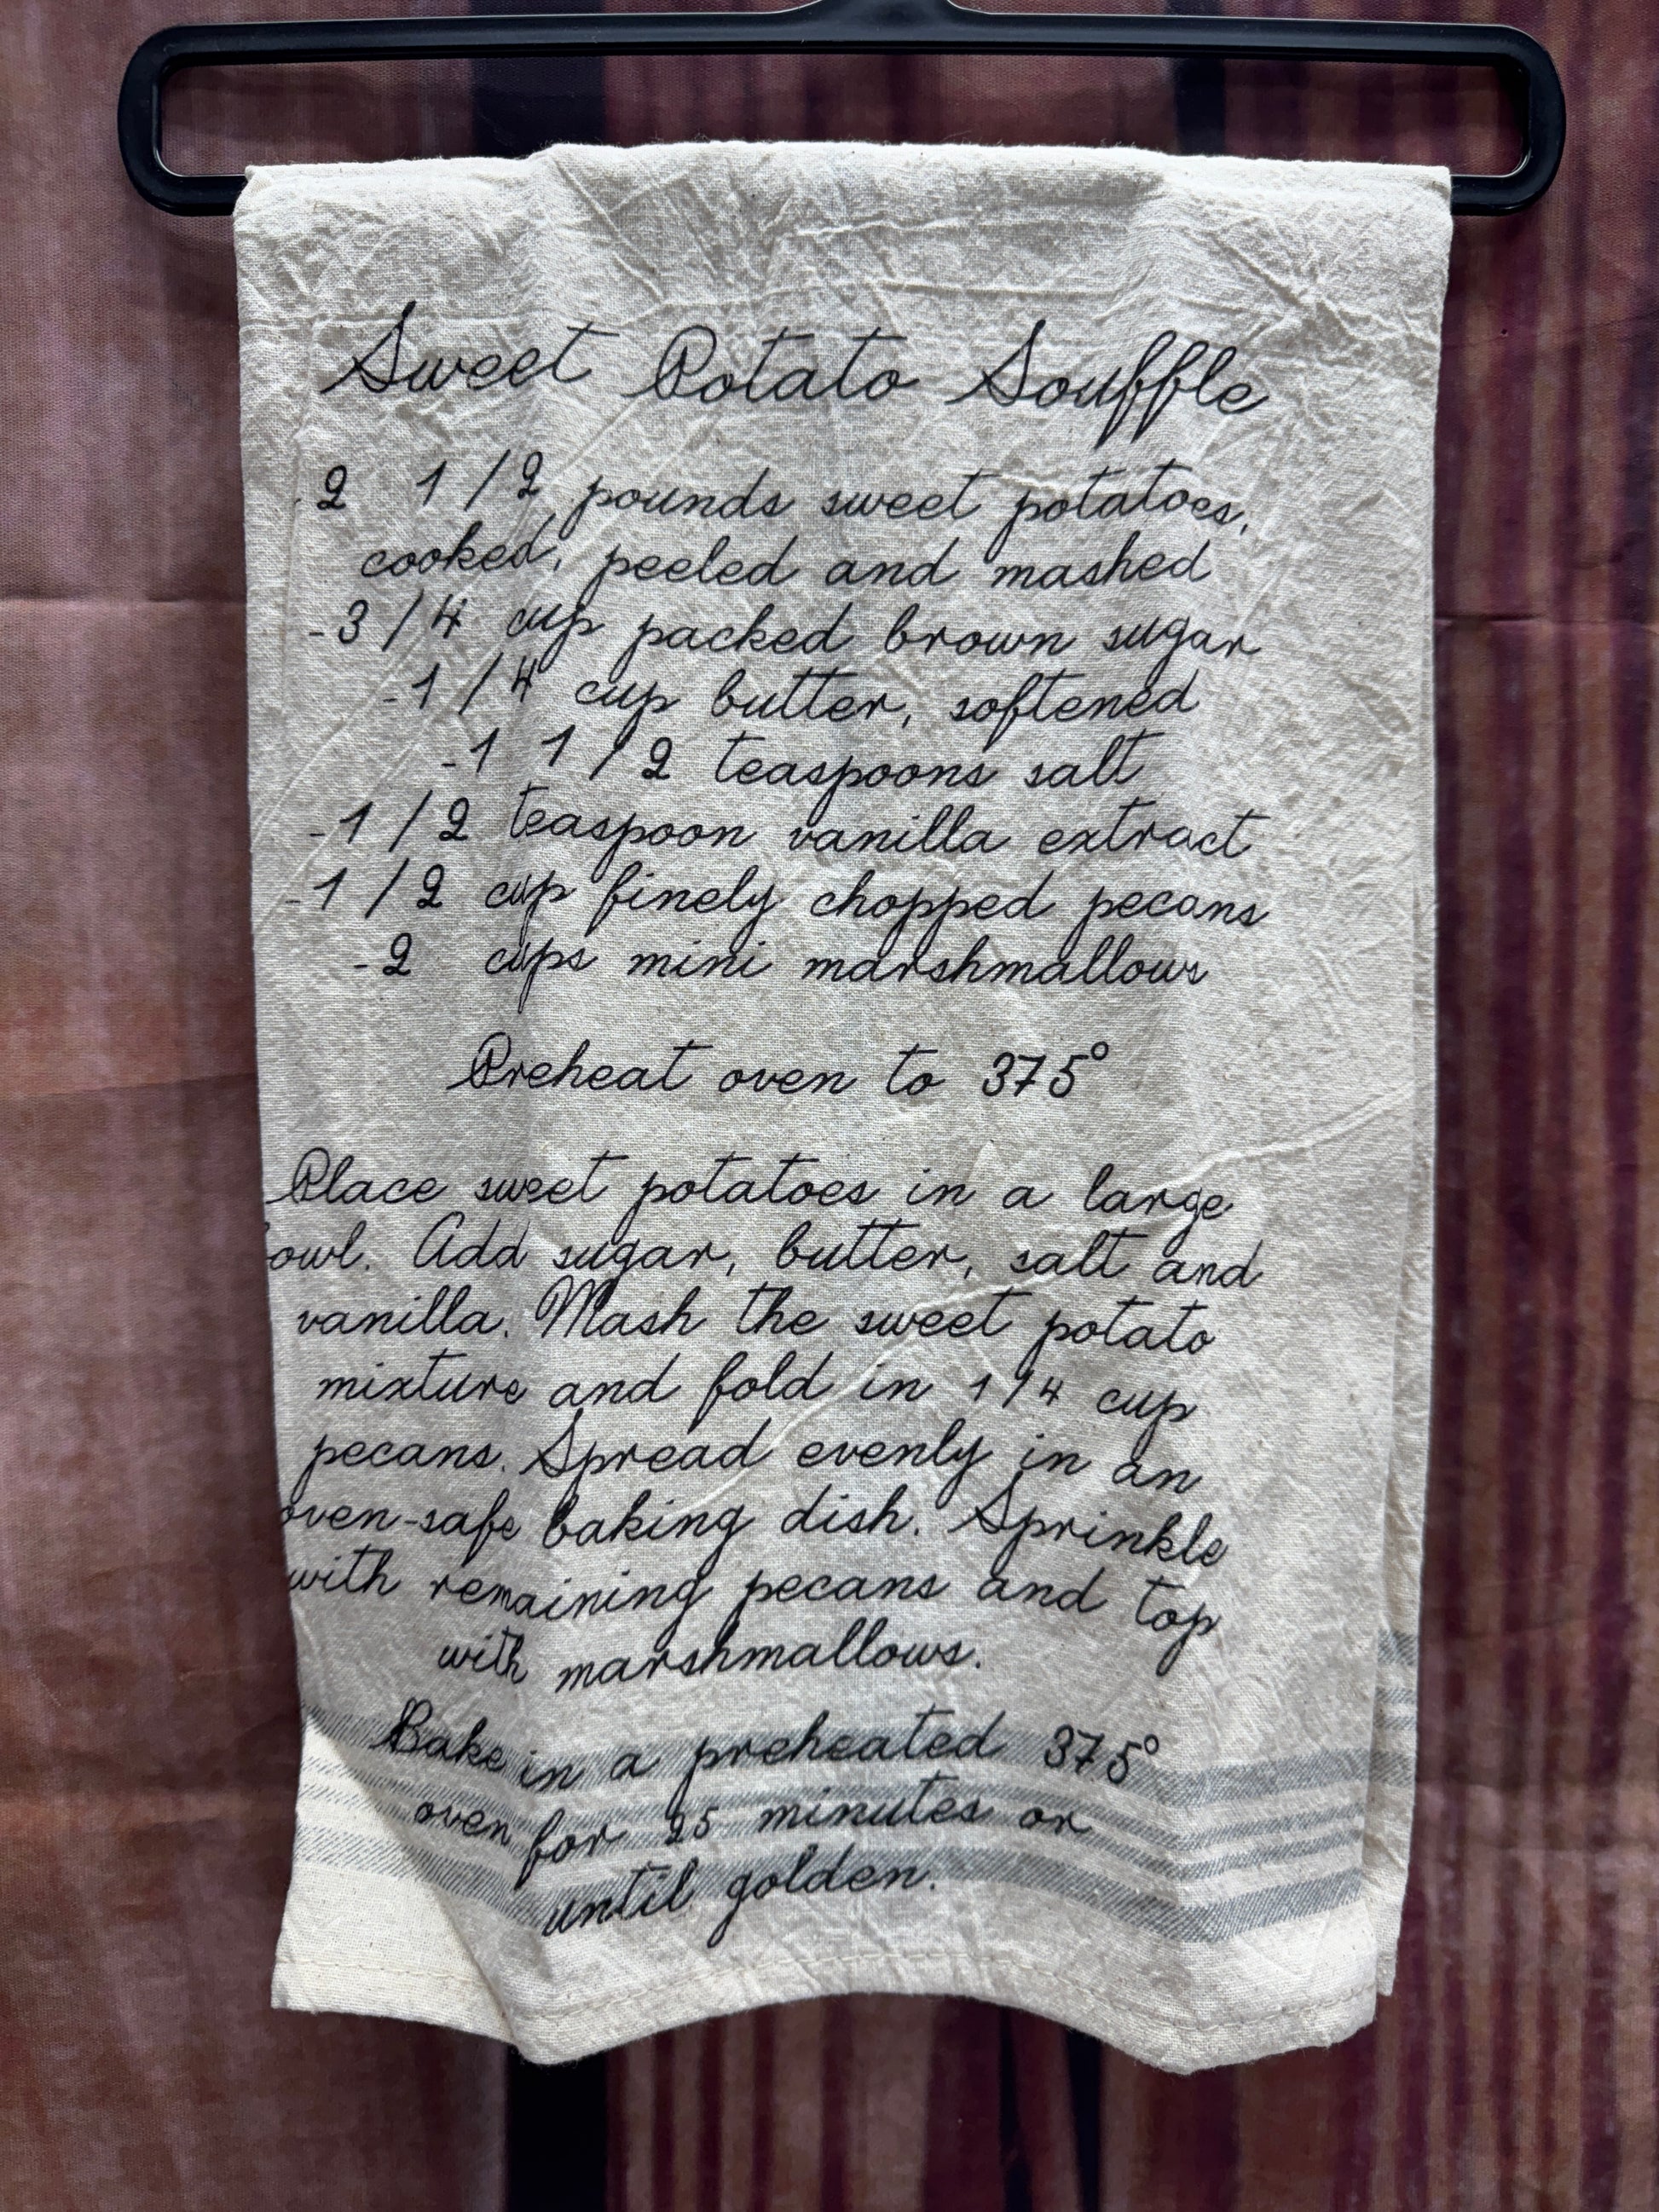 Sweet Potato Souffle
2 1/2 pounds sweet potatoes,
cooked, peeled and mashed
-3/4 cup packed brown sugar
-1/4 cup butter, softened
-1 1/2 teaspoons salt
-1/2 teaspoon vanilla extract
-1/2 cup finely chopped pecans
-2 cups mini marshmallows
Preheat oven to 375°
Place sweet potatoes in a large
owl. Add sugar, butter, salt and
vanilla. Mash the sweet potato
mixture and fold in 1/4 cup
pecans. Spread evenly in an
oven-safe baking dish. Sprinkle
with remaining pecans and top
with marshmallows.
Bake in a preheated 375°
oven for 25 minutes or
until golden.